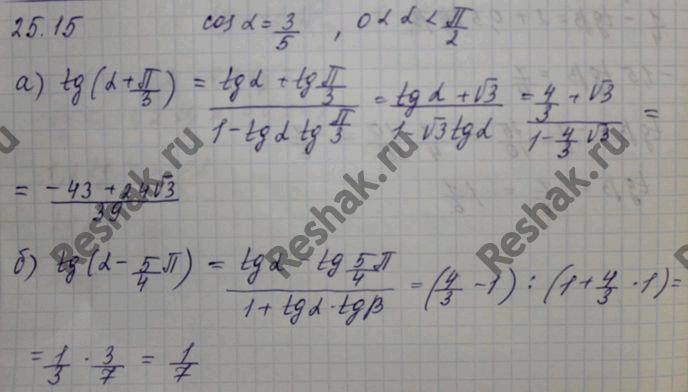 25.15 cos α = 3/5 , 0 < α < π/2
а) tg(α + π/3) = (tgα + tg π/3)/(1 - tgα tg π/3) = (tgα + √3)/(1 - √3 tgα) = (4/3 + √3)/(1 - 4/3 √3) =
= (-43 + 24√3)/39
б) tg(α - 5/4 π) = (tgα - tg 5/4 π)/(1 + tgα · tgβ) = (4/3 - 1) : (1 + 4/3 · 1) =
= 1/3 · 3/7 = 1/7
Reshak.ru